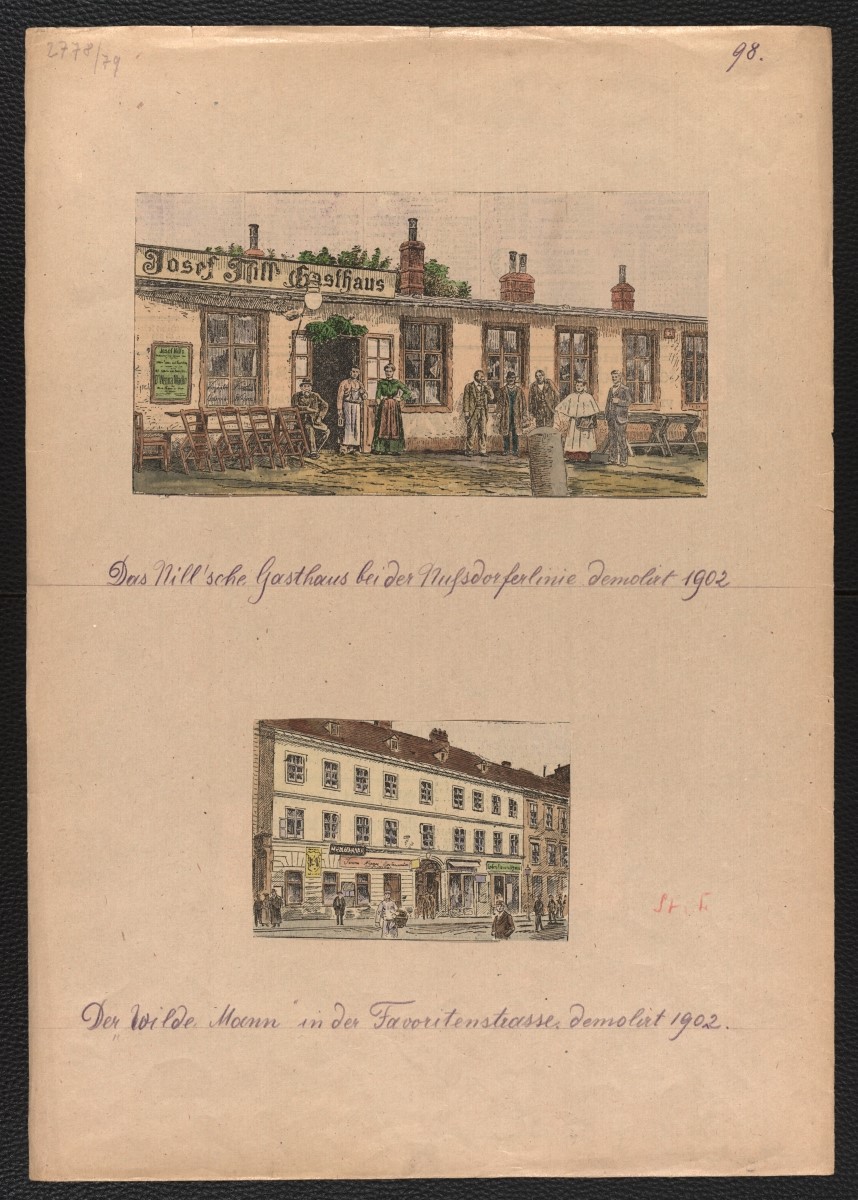 2778/79
98.
Josef Nill Gasthaus
Josef Nill's
Das Nill'sche Gasthaus bei der Nußdorferlinie demolirt 1902
St. I.
Der „Wilde Mann" in der Favoritenstrasse, demolirt 1902.